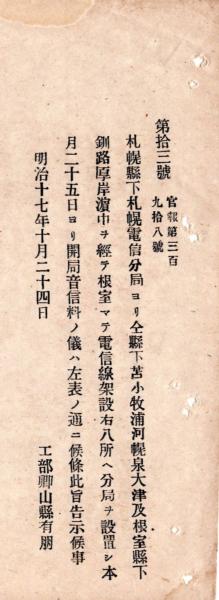 第拾三號
官報第三百
九拾八號
札幌縣下札幌電信分局ヨリ仝縣下苫小牧浦河幌泉大津及根室縣下
釧路厚岸濵中ヲ經テ根室マテ電信線架設右八所ヘ分局ヲ設置シ本
月二十五日ヨリ開局音信料ノ儀ハ左表ノ通ニ候條此旨告示候事
明治十七年十月二十四日
工部卿山縣有朋